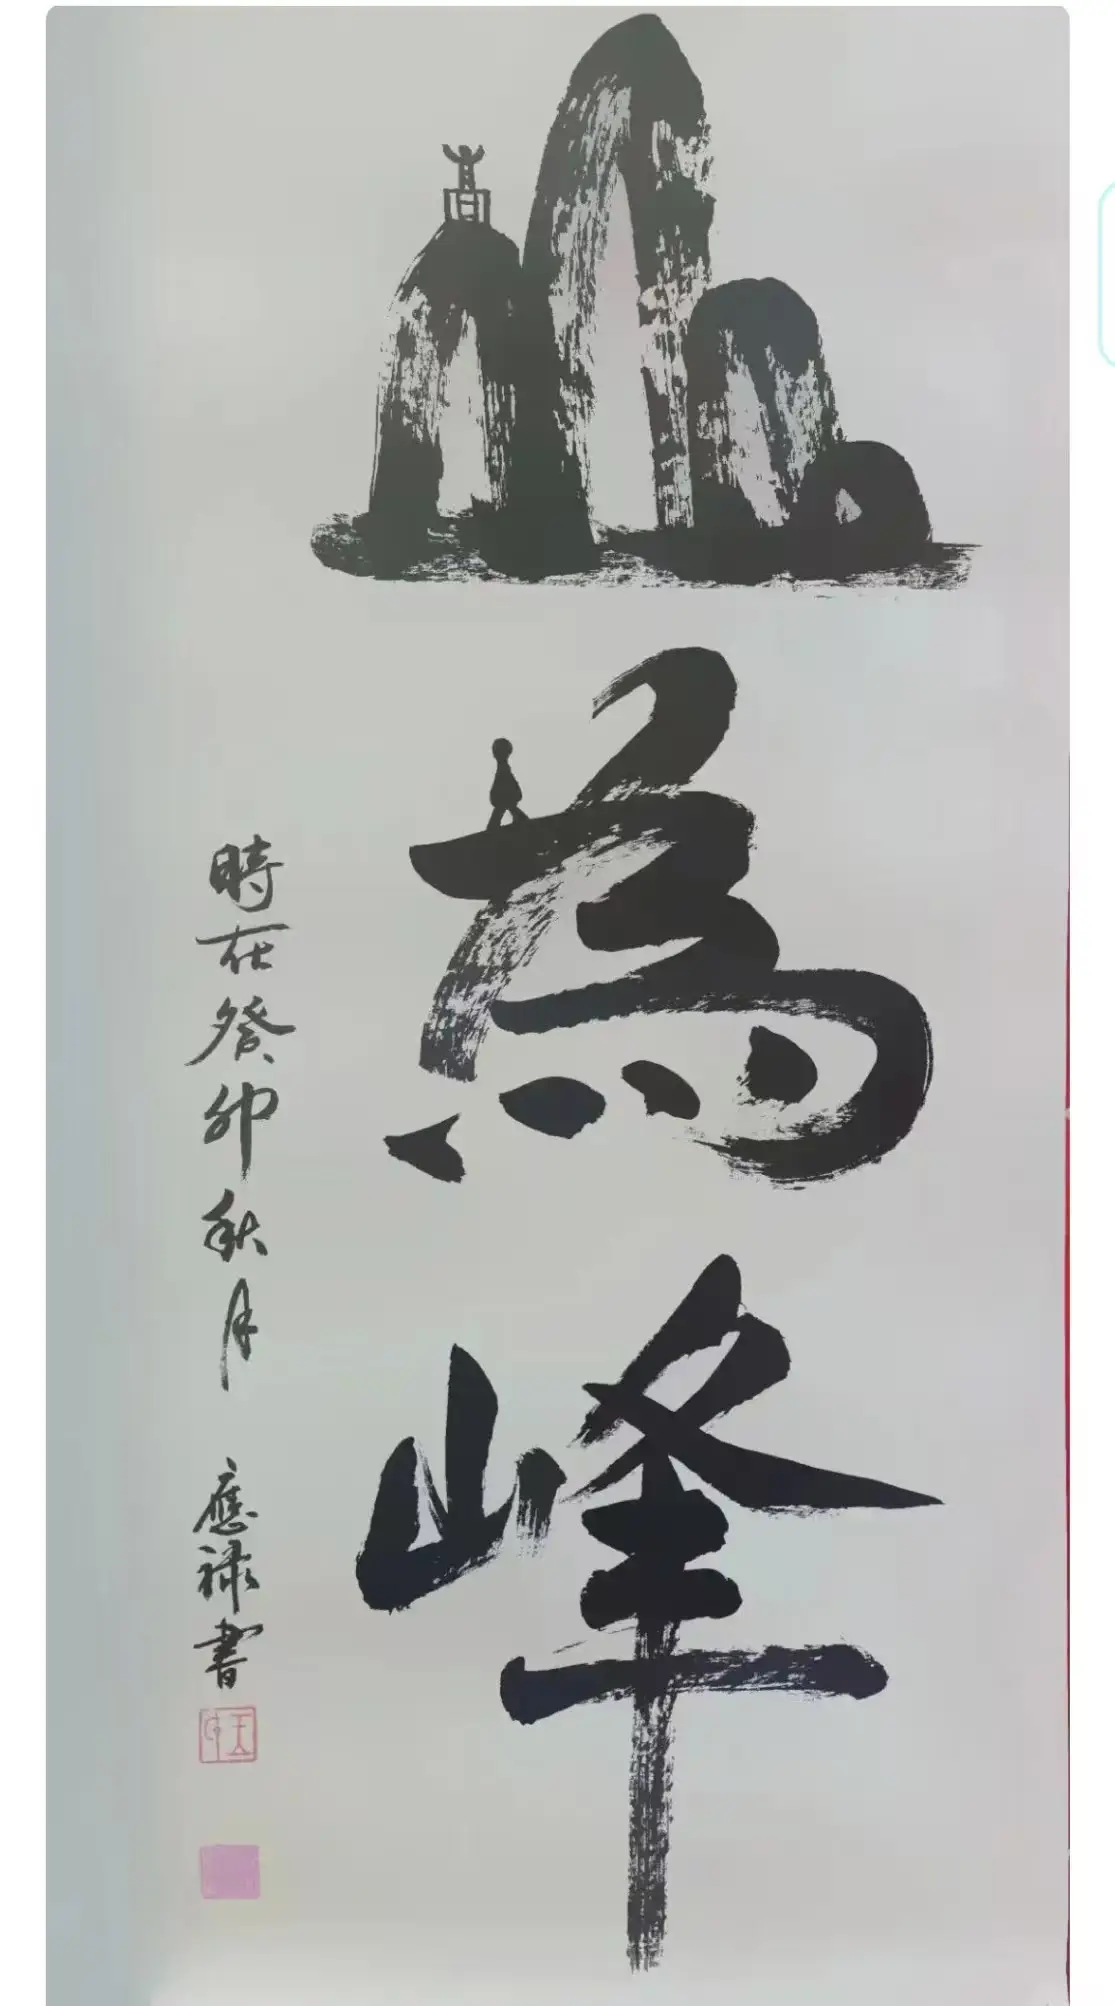 為
峰
時在癸卯秋月 應禄書